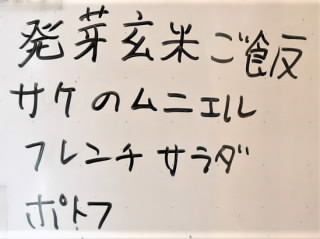 発芽玄米ご飯
サケのムニエル
フレンチサラダ
ポトフ